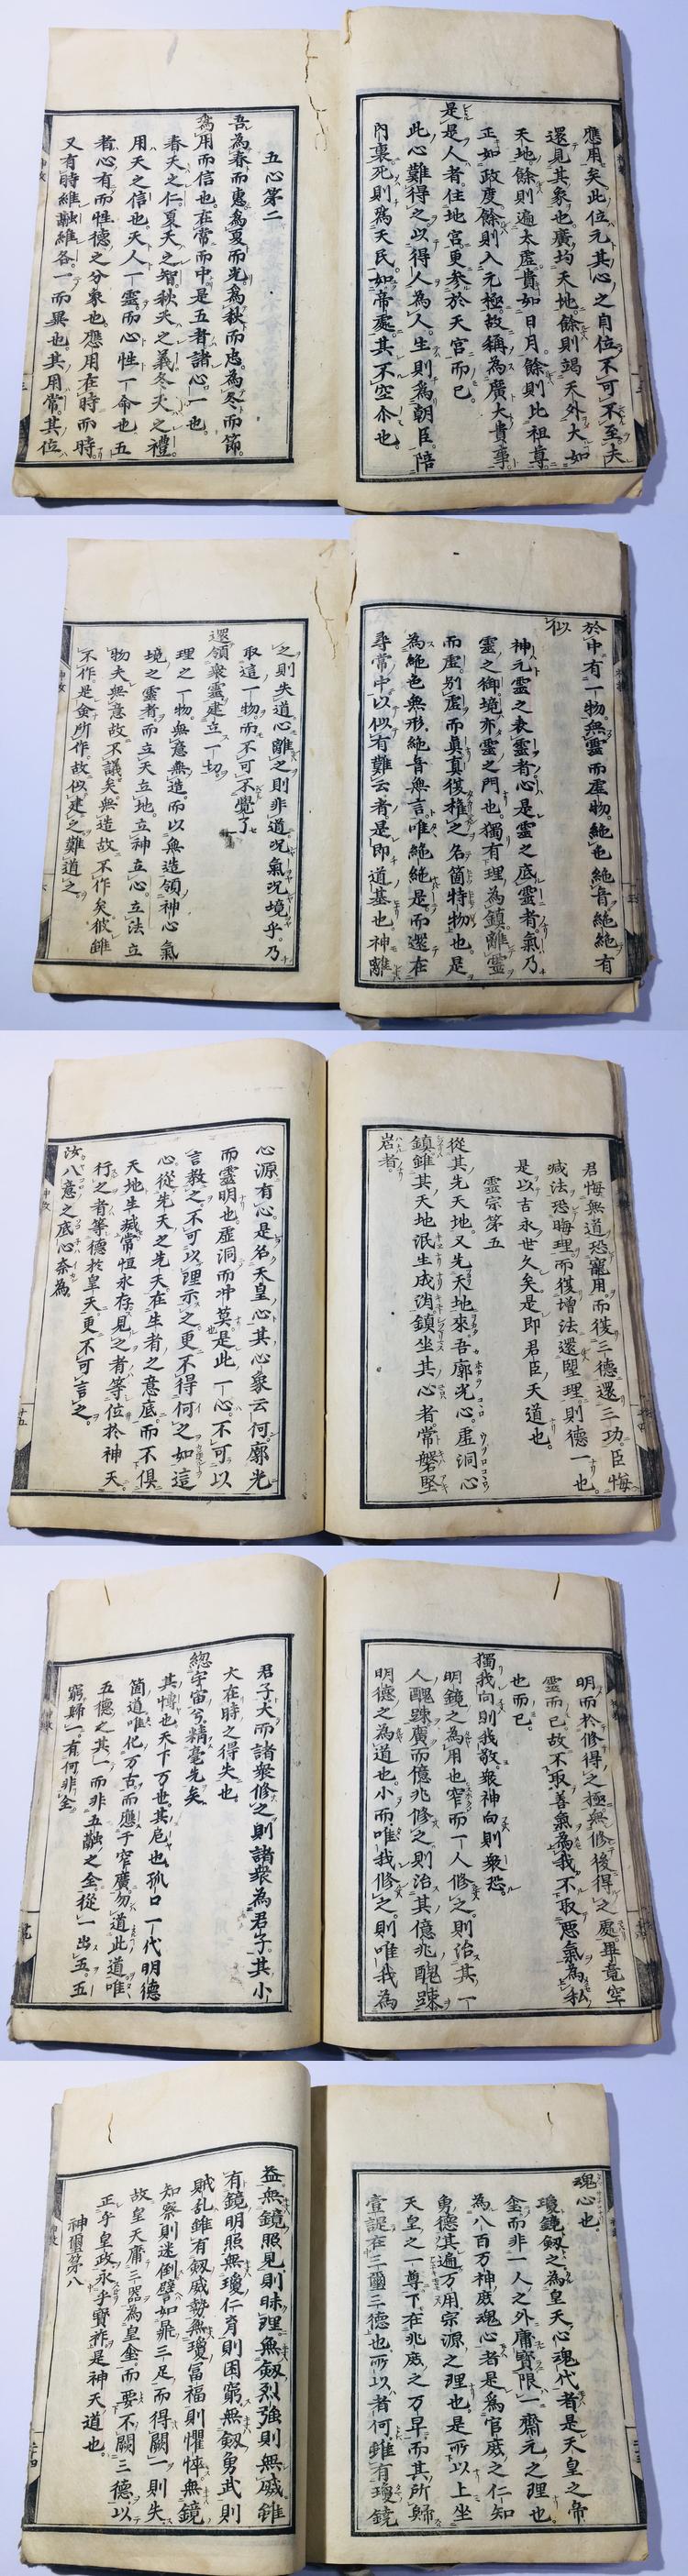 應用矣此位元其心之自位不可不至夫
還見其象也廣均天地餘則竭天外大如
天地餘則遍太虛貴如日月餘則比祖尊
正如政度餘則入元極故稱為廣大貴事
是是人者住地宮更參於天宮而已
此心難得之以得人為人生則爲朝臣陪
內裏死則爲天民如帝處其不空尒也
五心第二
吾為春而惠為夏而光爲秋而忠為冬而節
爲用而信也在常而中是五者諸心一也
春天之仁夏天之智秋天之義冬天之禮
用天之信也天人一靈而心性一命也五
者心有而性德之分象也應用在時而時
又有時維融維各一而異也其用常其位
於中有一物無靈而虛物絶色絶音絶絶有
似
神元靈之表靈者心是靈之底靈者氣乃
靈之御境亦靈之門也獨有理為鎮離靈
而虛別虛而眞眞後權之名箇特物也是
為絶色無形絶音無言唯絶絶是而還在
尋常中以似有難云者是即道基也神離
之則失道心離之則非道況氣況境乎乃
取這一物而不可不覺了
還領衆靈建立一切
理之一物無意無造而以無造領神心氣
境之靈者而立天立地立神立心立法立
物夫無意故不議矣無造故不作矣彼雖
不作是全所作故似建之難道之
君悔無道恐寵用而復三德還三功臣悔
減法恐晦理而復增法還堅理則德一也
是以吉永世久矣是即君臣天道也
靈宗第五
從其先天地又先天地來吾廓光心虛洞心
鎮雖其天地泯生成消鎮坐其心者常磐堅
岩者
心源有心是名天皇心其心象云何廓光
而靈明也虛洞而冲莫是此一心不可以
言教之不可以理示之更不得何之如這
心從先天之先天在生者之意底而不俱
天地生滅常恒永存見之者等位於神天
行之者等德於皇天更不可言之
汝八意之底心奈為
明而於修得之極無修後得之處畢竟空
靈而已故不取善氣為我不取惡氣為私
也而已
獨我向則我敬衆神向則衆恐
明鏡之為用也窄而一人修之則治其一
人醜踈廣而億兆修之則治其億兆醜踈
明德之為道也小而唯我修之則唯我為
君子大而諸衆修之則諸衆為君子其小
大在時之得失也
總宇宙兮精毫先矣
其愽也天下万世其巵也孤口一代明德
箇道唯化万古而應于窄廣勿道此道唯
五德之其一而非五融之全從一出五五
窮歸一有何非全
魂心也
瓊鏡劔之為皇天心魂代者是天皇之帝
全而非一人之外庸寳限一齋元之理也
為八百万神庶魂心者是爲官庶之仁知
勇德其遍万用宗源之理也是所以上坐
天皇之一尊下在兆庶之万早而其所歸
壹諟在三璽三德也所以者何雖有瓊鏡
益無鏡照見則昧理無劔烈強則無威雖
有鏡明照無瓊仁育則困窮無劔勇武則
賊乱雖有劔威勢無瓊富福則懼悴無鏡
知察則迷倒譬如鼎三足而得闕一則失
故皇天庸三器為皇全而要不闕三德以
正乎皇政永乎寳祚是神天道也
神璽第八